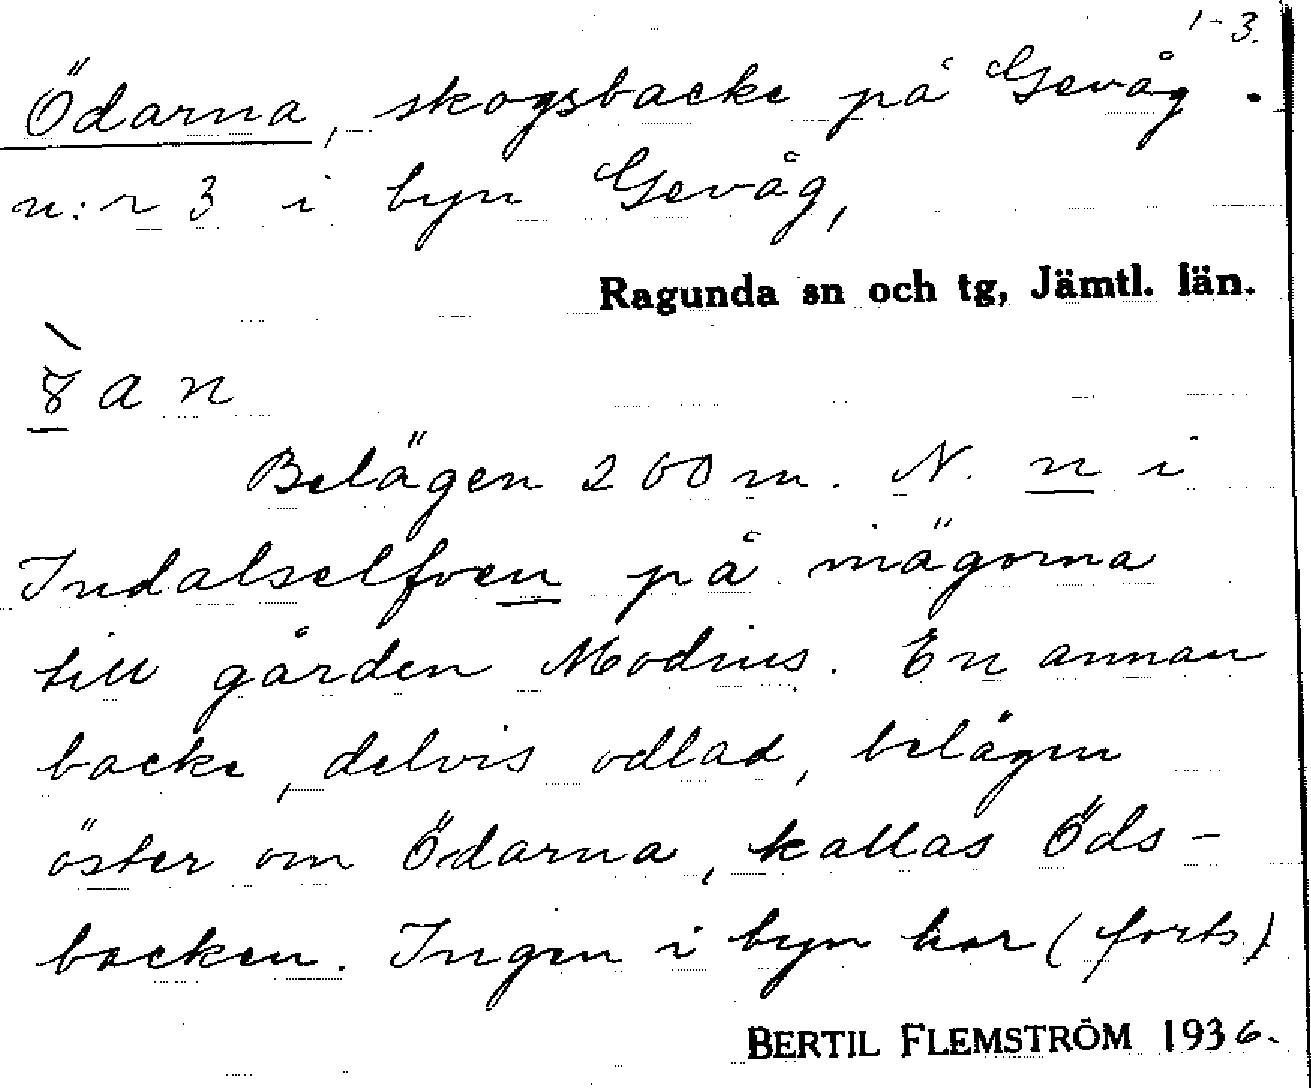 1-3.
Ödarna, skogsbacke på Gevåg
n:r 3 i byn Gevåg,
Ragunda sn och tg, Jämtl. län.
a n
Belägen 200 m. N. n i
Indalselfven på mägorna
till gården Modins. En annan
backe, delvis odlad, belägen
öster om Ödarna, kallas Öds-
backen. Ingen i byn har (forts)
BERTIL FLEMSTRÖM 1936.